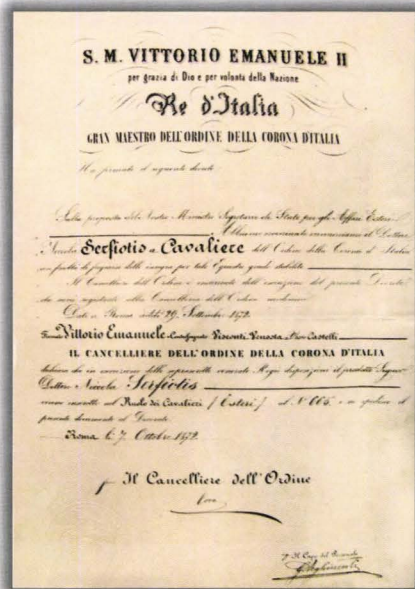 S. M. VITTORIO EMANUELE II
per grazia di Dio e per volontà della Nazione
Re d'Italia
GRAN MAESTRO DELL'ORDINE DELLA CORONA D'ITALIA
Ha firmato il seguente decreto
Sulla proposta del Nostro Ministro Segretario di Stato per gli Affari Esteri
Abbiamo nominato e nominiamo il Dottore
Nicola Serfiotis a Cavaliere dell'Ordine della Corona d'Italia
con facoltà di fregiarsi delle insegne per tale Equestre grado stabilite
Il Cancelliere dell'Ordine è incaricato dell'esecuzione del presente Decreto
che sarà registrato alla Cancelleria dell'Ordine medesimo
Dato a Roma addì 29 Settembre 1872
Firmato Vittorio Emanuele Contrassegnato Visconti Venosta Castelli
IL CANCELLIERE DELL'ORDINE DELLA CORONA D'ITALIA
dichiara che in esecuzione delle sopracitte Regie disposizioni il predetto Signor
Dottore Nicola Serfiotis
venne inscritto nel Ruolo dei Cavalieri (Esteri) al N. 665 e ne spedisce il
presente documento al Decorato
Roma li 7 Ottobre 1872
Il Cancelliere dell'Ordine